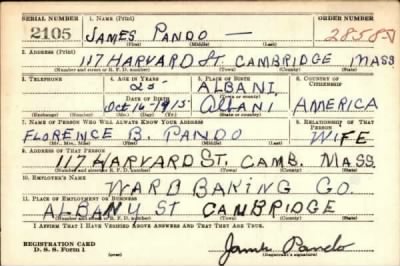 SERIAL NUMBER 1. NAME (Print) ORDER NUMBER
2105 JAMES PANDO —
(First) (Middle) (Last)
2. ADDRESS (Print)
117 HARVARD ST. CAMBRIDGE MASS
(Number and street or R. F. D. number) (Town) (County) (State)
3. TELEPHONE 4. AGE IN YEARS 5. PLACE OF BIRTH 6. COUNTRY OF CITIZENSHIP
25 ALBANI,
DATE OF BIRTH (Town or county)
Oct 16 1915 Albani AMERICA
(Exchange) (Number) (Mo.) (Day) (Yr.) (State or country)
7. NAME OF PERSON WHO WILL ALWAYS KNOW YOUR ADDRESS 8. RELATIONSHIP OF THAT PERSON
FLORENCE B. PANDO WIFE
(Mr., Mrs., Miss) (First) (Middle) (Last)
9. ADDRESS OF THAT PERSON
117 HARVARD ST. CAMB. MASS
(Number and street or R. F. D. number) (Town) (County) (State)
10. EMPLOYER'S NAME
WARD BAKING CO.
11. PLACE OF EMPLOYMENT OR BUSINESS
ALBANY ST CAMBRIDGE
(Number and street or R. F. D. number) (Town) (County) (State)
I AFFIRM THAT I HAVE VERIFIED ABOVE ANSWERS AND THAT THEY ARE TRUE.
REGISTRATION CARD
D. S. S. Form 1 James Pando
(Registrant's signature)